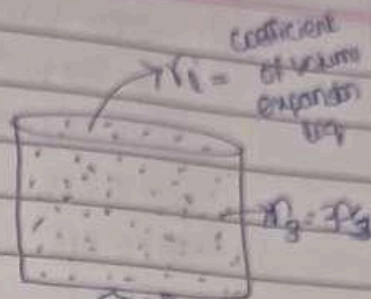 coefficient
γl = of volume
expansion
liq
γg = 3αg